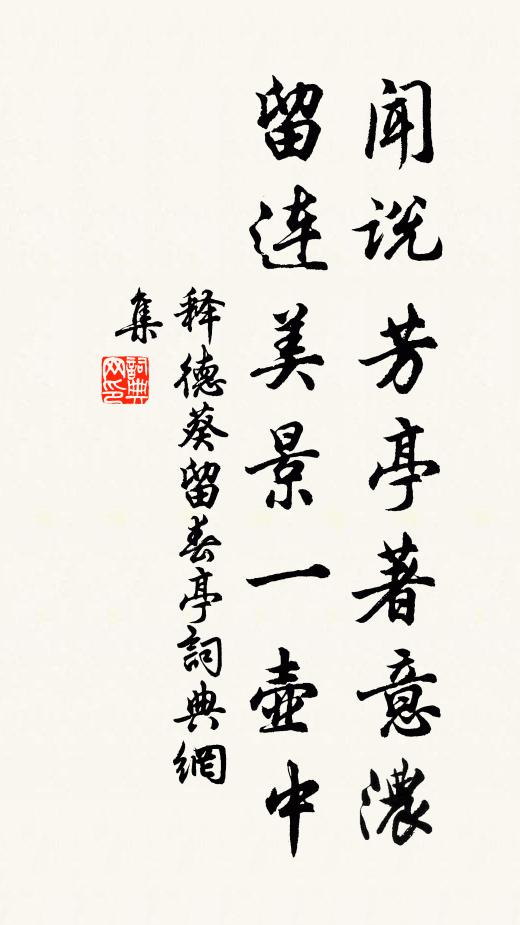 闻说芳亭著意濃
留连美景一壺中
释德葵留春亭詞典網
集
詞典网印